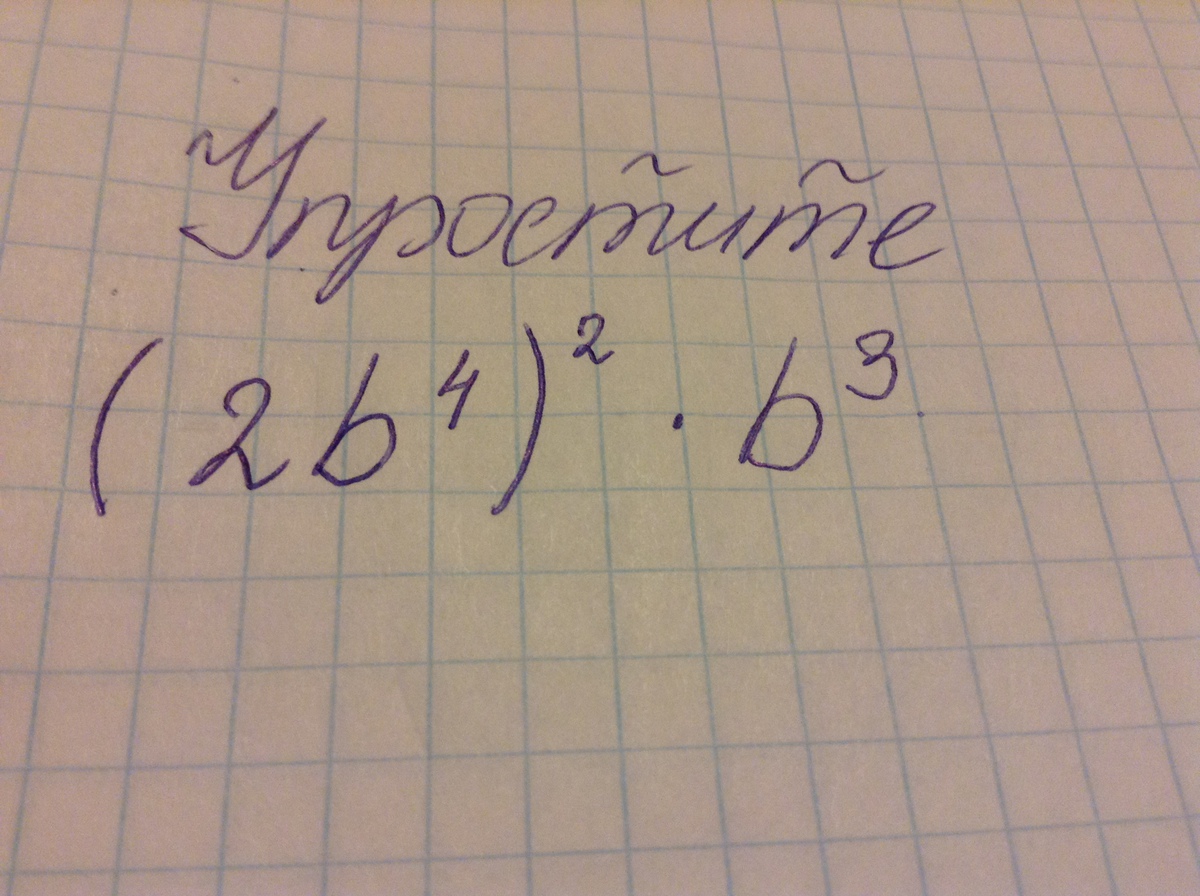 Упростите
(2b⁴)² · b³